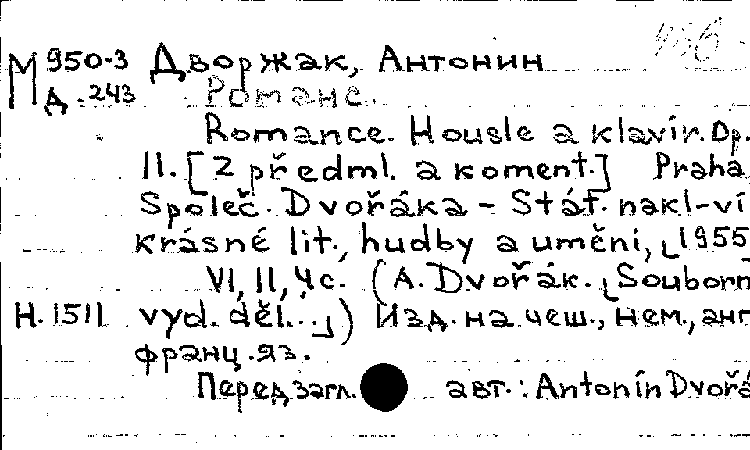 М 950-3 Дворжак, Антонин
Д. 243 Романс.
Romance. Housle a klavír. Op.
11. [Z předml. a koment.] Praha
Společ. Dvořáka - Stát. nakl-ví
krásné lit., hudby a umění, [1955
VI, 11, 4 c. (A. Dvořák. [Souborn
Н. 1511 vyd. děl...]) Изд. на чеш., нем., анг
франц. яз.
Перед загл. авт.: Antonín Dvořá